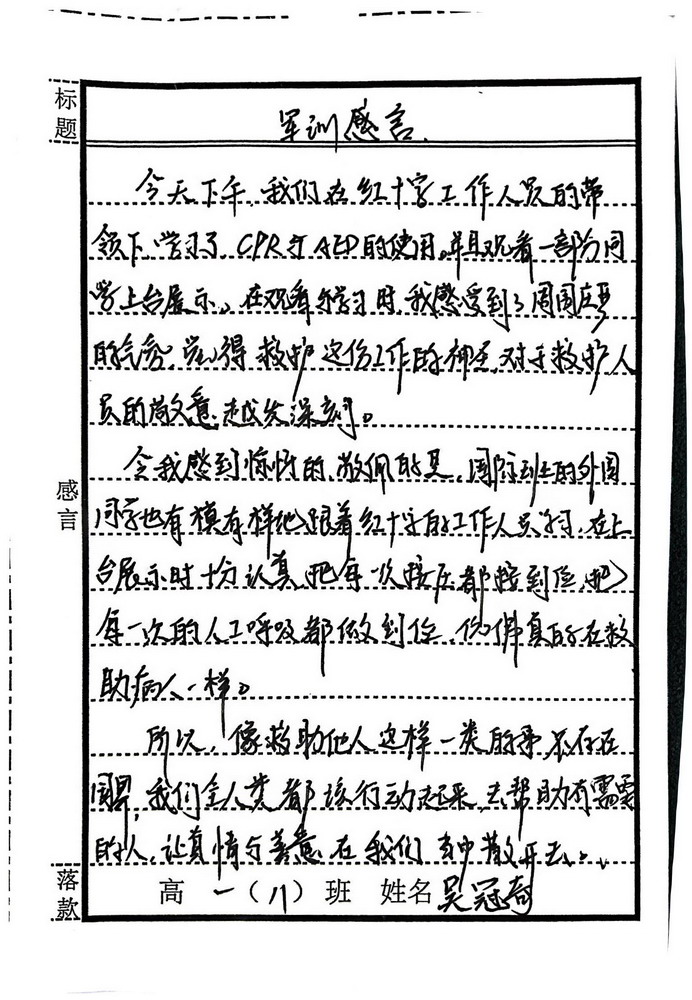 标题
军训感言
今天下午,我们在红十字工作人员的带
领下,学习了CPR与AED的使用。并且观看一部分同
学上台展示。在观看与学习时,我感受到了周围庄严
的气氛,觉得救护这份工作的神圣,对于救护人
员的敬意越发深刻。
令我感到惊讶的,敬佩的是,国际班上的外国
感言
同学也有模有样地跟着红十字的工作人员学习,在上
台展示时十分认真,把每一次按压都按到位,把
每一次的人工呼吸都做到位,仿佛真的在救
助病人一样。
所以,像救助他人这样一类的事不存在
国界,我们全人类都该行动起来,去帮助有需要
的人,让真情与善意在我们当中散开去。
落款
高一(八)班 姓名 吴冠奇